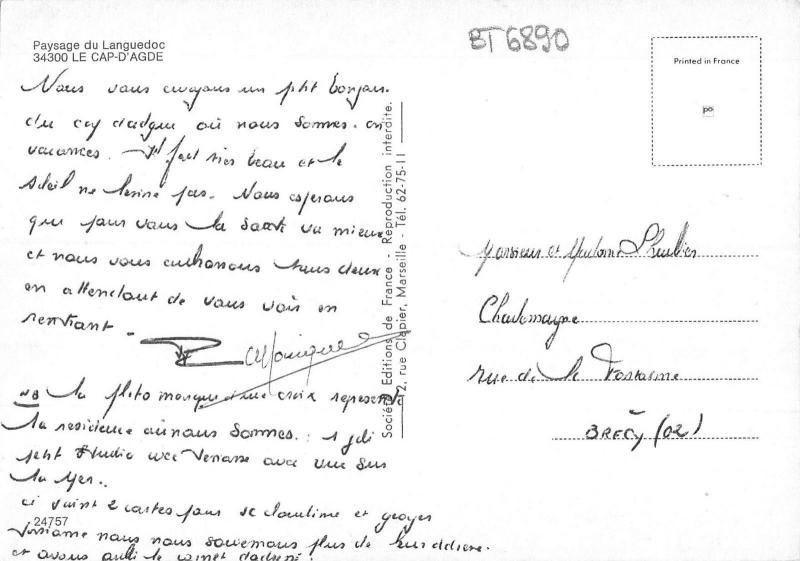 Paysage du Languedoc
34300 LE CAP-D'AGDE
BT6890
Printed in France
Nous vous envoyons un ptit bonjour
du cap dadgue où nous sommes en
vacances. Il fait très beau et le
soleil ne termine pas. Nous espérons
que pour vous la santé va mieux
et nous vous embrassons tous deux
en attendant de vous voir en
rentrant.
NB la photo marquée d'une croix représente
la residence où nous sommes : 1 joli
petit studio avec Terrasse avec vue sur
la Mer.
ci joint 2 cartes pour et
nous nous souvenons plus de leur adresse
et avons oublié le carnet dadresse.
24757
Société Editions de France - Reproduction interdite.
2, rue Clapier, Marseille - Tél. 62-75-11
Monsieur et Madame
Charlemagne
rue de la Fontaine
BRECY (02)